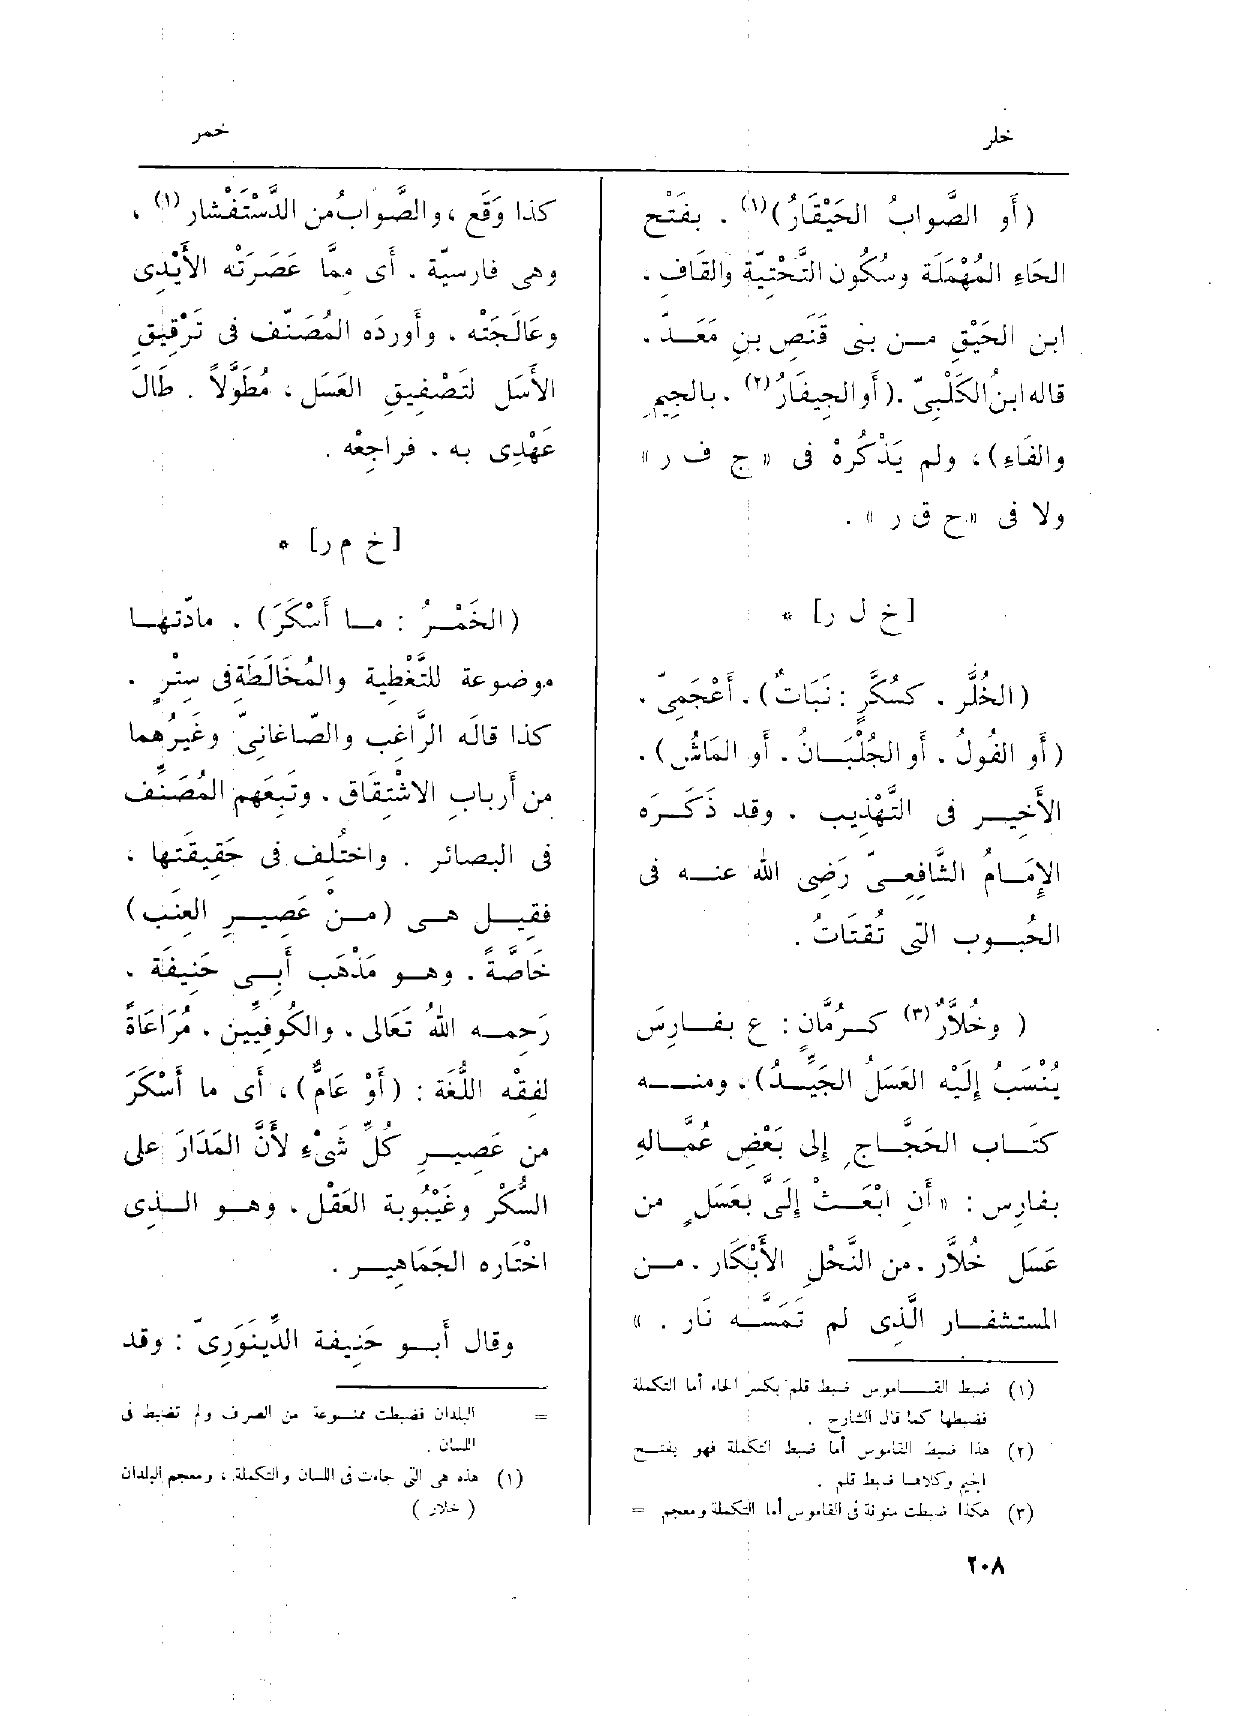 خلر
خمر
(أو الصَّوابُ الحَيْقَارُ)(١) . بفَتْح
الحَاءِ المُهْمَلَة وسُكُون التَّحْتِيَّة والقَاف ،
ابن الحَيْقِ مــن بنى قَنَصِ بنِ مَعَــدّ ،
قاله ابنُ الكَلْبِىّ .(أو الجِيفَارُ(٢) . بالجِيمِ
والفَاءِ) ، ولم يَذْكُرْهُ فى « ج ف ر »
ولا فى « ح ق ر » .
[ خ ل ر] *
(الخُلَّر ، كسُكَّرٍ : نَبَاتٌ) ، أَعْجَمِىّ ،
(أو الفُولُ ، أو الجُلْبَــانُ ، أو المَاشُ) ،
الأَخيــر فى التَّهْذِيب . وقد ذَكَــرَه
الإِمَــامُ الشَّافِعِــىّ رَضِى الله عنــه فى
الحُبــوب التى تُقتَاتُ .
( وخُلاَّرٌ(٣) كــرُمَّانٍ : ع بفــارِسَ
يُنْسَبُ إِلَيْه العَسَلُ الجَيِّــدُ) ، ومنــه
كتَــاب الحَجَّاجِ إلى بَعْضِ عُمَّــالِهِ
بفارِس : « أَنِ ابْعَــثْ إِلَىَّ بعَسَلٍ من
عَسَل خُلاَّر ، من النَّحْلِ الأَبْكَار ، مــن
المستشفــار الَّذى لم تَمَسَّــه نَار . »
(١) ضبط القــاموس ضبط قلم بكسر الحاء أما التكملة
فضبطها كما قال الشارح .
(٢) هذا ضبط القاموس أما ضبط التكملة فهو بفتــح
الجيم وكلاهــا ضبط قلم .
(٣) هكذا ضبطت منونة فى القاموس أما التكملة ومعجم =
كذا وَقَع ، والصَّوابُ من الدَّسْتَفْشار(١) ،
وهى فارسيّة . أى مِمَّا عَصَرَتْه الأَيْدِى
وعَالَجَتْه . وأَورَدَه المُصَنِّف فى تَرْقِيقِ
الأَسَل لتَصْفِيقِ العَسَل ، مُطَوَّلاً . طَالَ
عَهْدِى به . فراجِعْه .
[ خ م ر] *
(الخَمْــرُ : مــا أَسْكَرَ) . مادّتهــا
موضوعة للتَّغْطِية والمُخَالَطَة فى سِتْرٍ .
كذا قاله الرَّاغب والصّاغانىّ وغَيرُهما
من أَرباب الاشْتِقَاق . وتَبِعَهم المُصَنِّف
فى البصائر . واختُلف فى حَقِيقَتها ،
فقِيــل هــى (مــنْ عَصِيــرِ العِنَب)
خَاصَّةً . وهــو مَذْهَب أَبِــى حَنِيفَة ،
رَحِمــه اللهُ تَعَالى ، والكُوفِيِّين ، مُرَاعَاةً
لفِقْه اللُّغَة : (أَوْ عَامٌّ) ، أَى ما أَسْكَرَ
من عَصِيــرِ كُلِّ شَىْءٍ لأَنَّ المَدَارَ على
السُّكْرِ وغَيْبُوبة العَقْل ، وهــو الــذى
اخْتَاره الجَمَاهِيــر .
وقال أَبــو حَنِيفة الدِّينَوَرِىّ : وقد
= البلدان فضبطت ممنــوعة من الصرف ولم تضبط فى
اللسان .
(١) هذه هى التى جاءت فى اللسان والتكملة ، ومعجم البلدان
( خلار )
٢٠٨